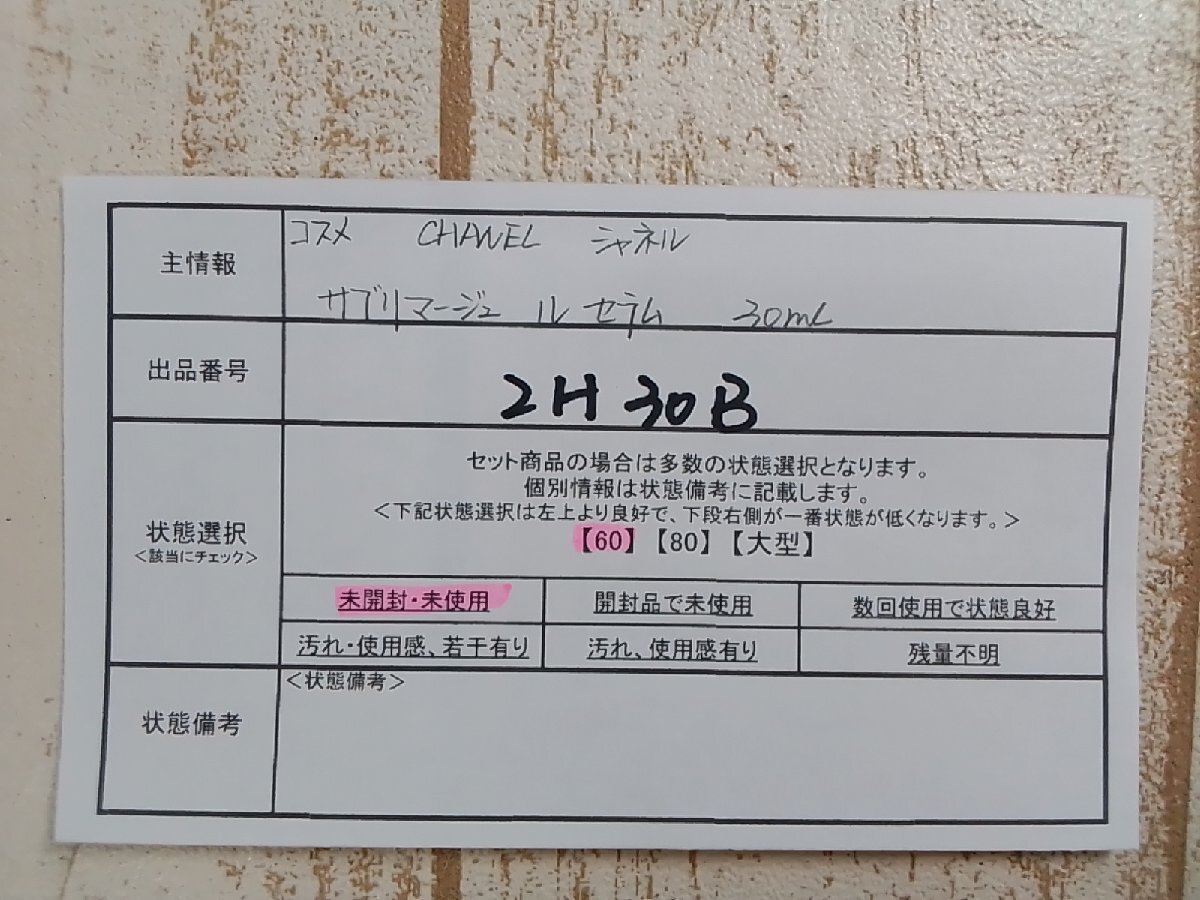 主情報
コスメ CHANEL シャネル
サブリマージュ ル セラム 30mL
出品番号
2H30B
状態選択
<該当にチェック>
セット商品の場合は多数の状態選択となります。
個別情報は状態備考に記載します。
<下記状態選択は左上より良好で、下段右側が一番状態が低くなります。>
【60】【80】【大型】
未開封・未使用 開封品で未使用 数回使用で状態良好
汚れ・使用感、若干有り 汚れ、使用感有り 残量不明
状態備考
<状態備考>